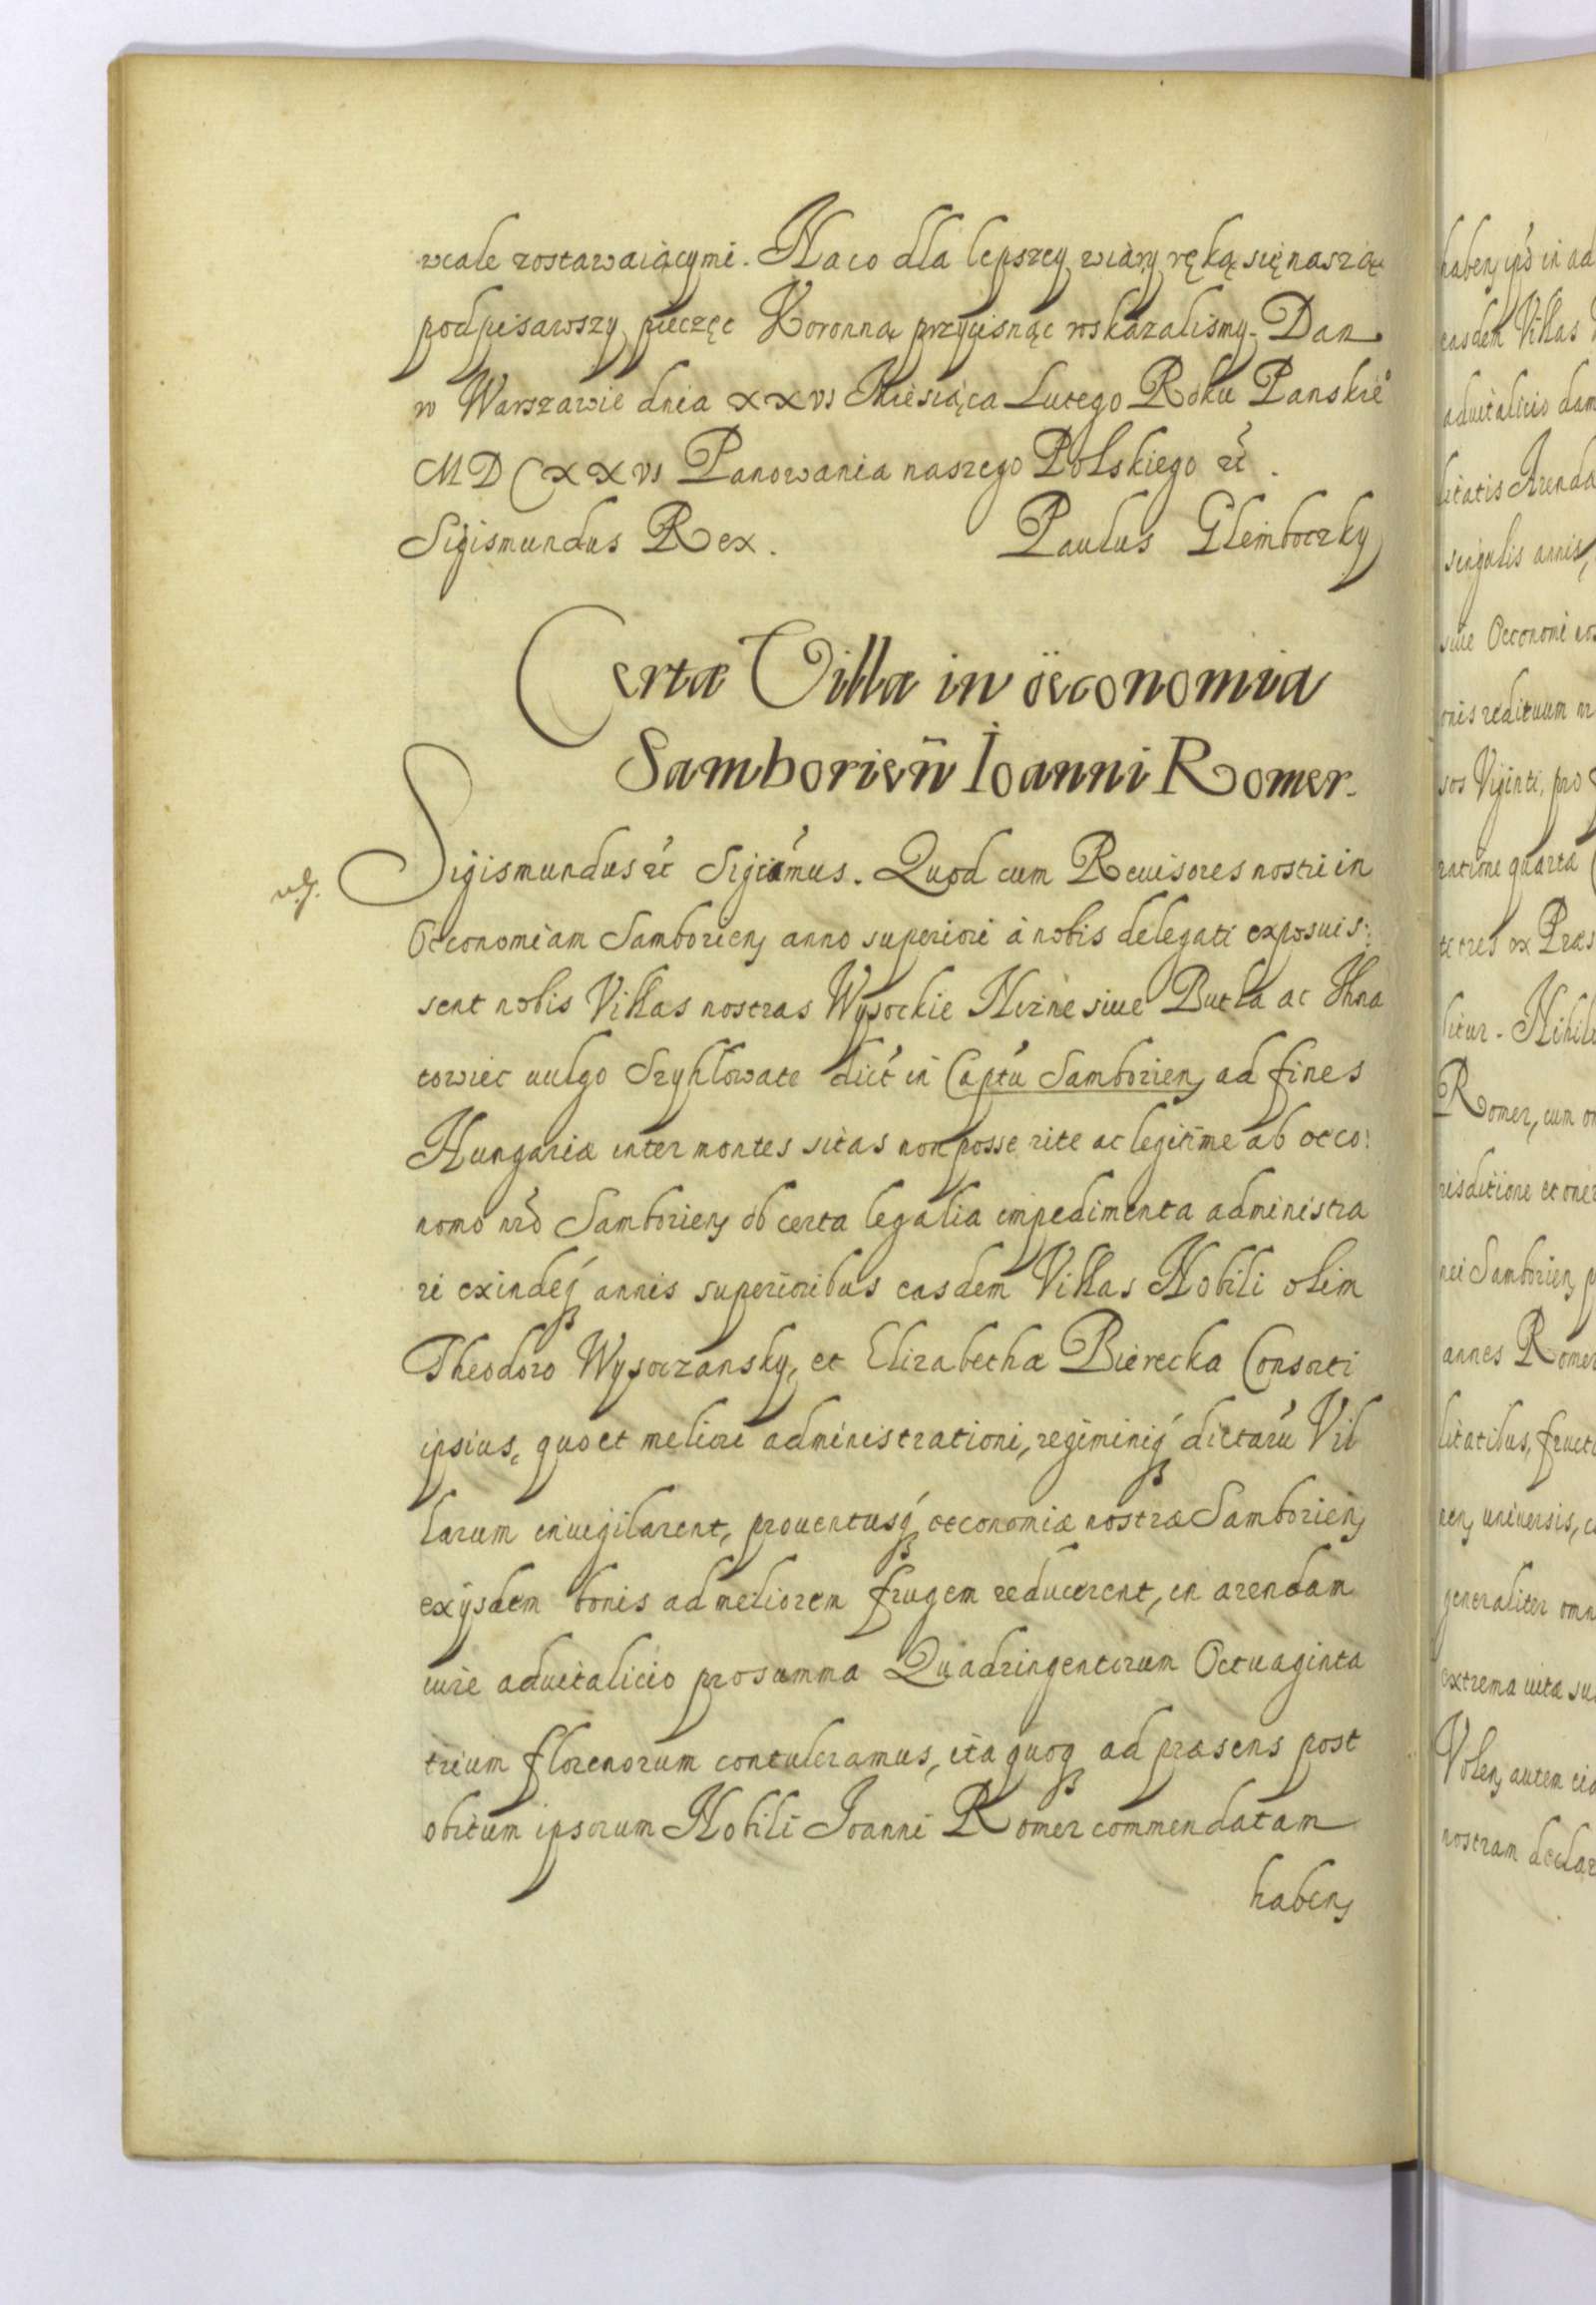 wcale zostawaiącymi. Na co dla lepszey wiary ręką się naszą
podpisawszy pieczęc Koronną przycisnąc roskazalismy. Dan
w Warszawie dnia XXVI Miesiąca Lutego Roku Panskie⁰
MDCXXVI Panowania naszego Polskiego etc.
Sigismundus Rex. Paulus Glemboczky
Certæ Villæ in öeconomia
Samborien̄ Ioanni Romer.
Sigismundus etc Sigcamus. Quod cum Reuisores nostri in
Oeconomiam Samborien̨ anno superiori à nobis delegati exposuis:
sent nobis Villas nostras Wysockie Nizne siue Butla ac Ihna
towiec uulgo Szyhlowate dict' in Captu Samborien̨ ad fines
Hungariæ inter montes sitas non posse rite ac legitime ab oeco:
nomo nrō Samborien̨ ob certa legalia impedimenta administra
ri exindeq́ annis superioribus easdem Villas Nobili olim
Theodoro Wysoczansky, et Elizabethæ Bierecka Consorti
ipsius, quo et meliori administrationi, regiminiq́ dictarū Vil
larum inuigilarent, prouentusq́ oeconomiæ nostræ Samborien̨
ex ijsdem bonis ad meliorem frugem reducerent, in arendam
iure aduitalicio pro summa Quadringentorum Octuaginta
trium florenorum contuleramus, ita quoq ad præsens post
obitum ipsorum Nobili Ioanni Romer commendatam
haben̨
haben̨ ips̄o in ad
easdem Villas
aduitalicio dam
litatis Arenda
singulis annis,
siue Oeconomi
onis redituum
sos Viginti, pro
ratione quarta
litur. Nihil
Romer, cum
risditione et one
nei Samborien̨ p
annes Romer
litatibus, fruct
universis,
generaliter omn
extrema uitæ su
Volen̨ autem
nostram declar